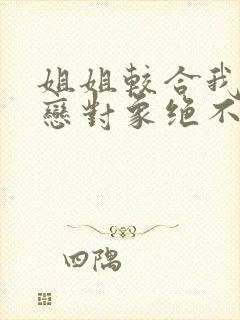 姐姐較合我
戀對象绝不
四隅